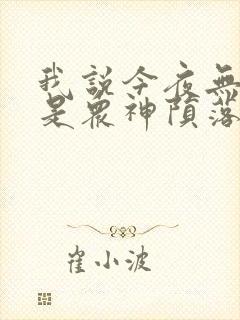 我說今夜無
是眾神隕落
崔小波